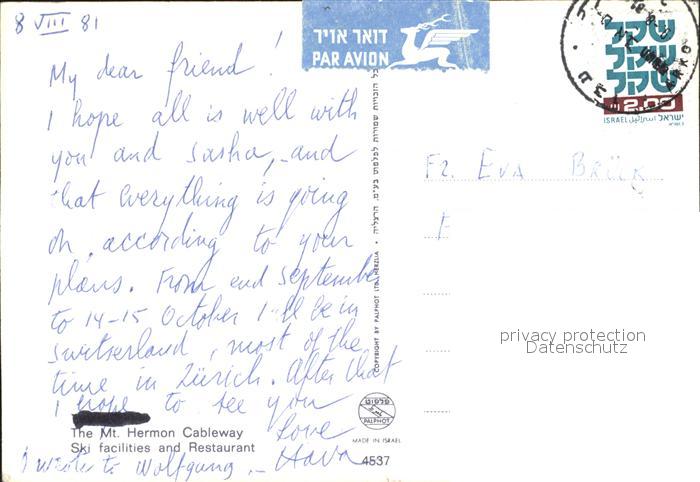 8 VIII 81
My dear friend!
I hope all is well with
you and Sasha, - and
that everything is going
on, according to your
plans. From end September
to 14-15 October I'll be in
Switzerland, most of the
time in Zürich. After that
I hope to see you
Love
Hava
I wrote to Wolfgang -
The Mt. Hermon Cableway
Ski facilities and Restaurant
דואר אויר
PAR AVION
כל הזכויות שמורות לפלפוט בע"מ. הרצליה •
COPYRIGHT BY PALPHOT LTD. HERZLIA
פלפוט
PALPHOT
MADE IN ISRAEL
4537
שקל
שקל
שקל
2.00
ISRAEL اسرائيل ישראל
Fr. Eva Brück
privacy protection
Datenschutz